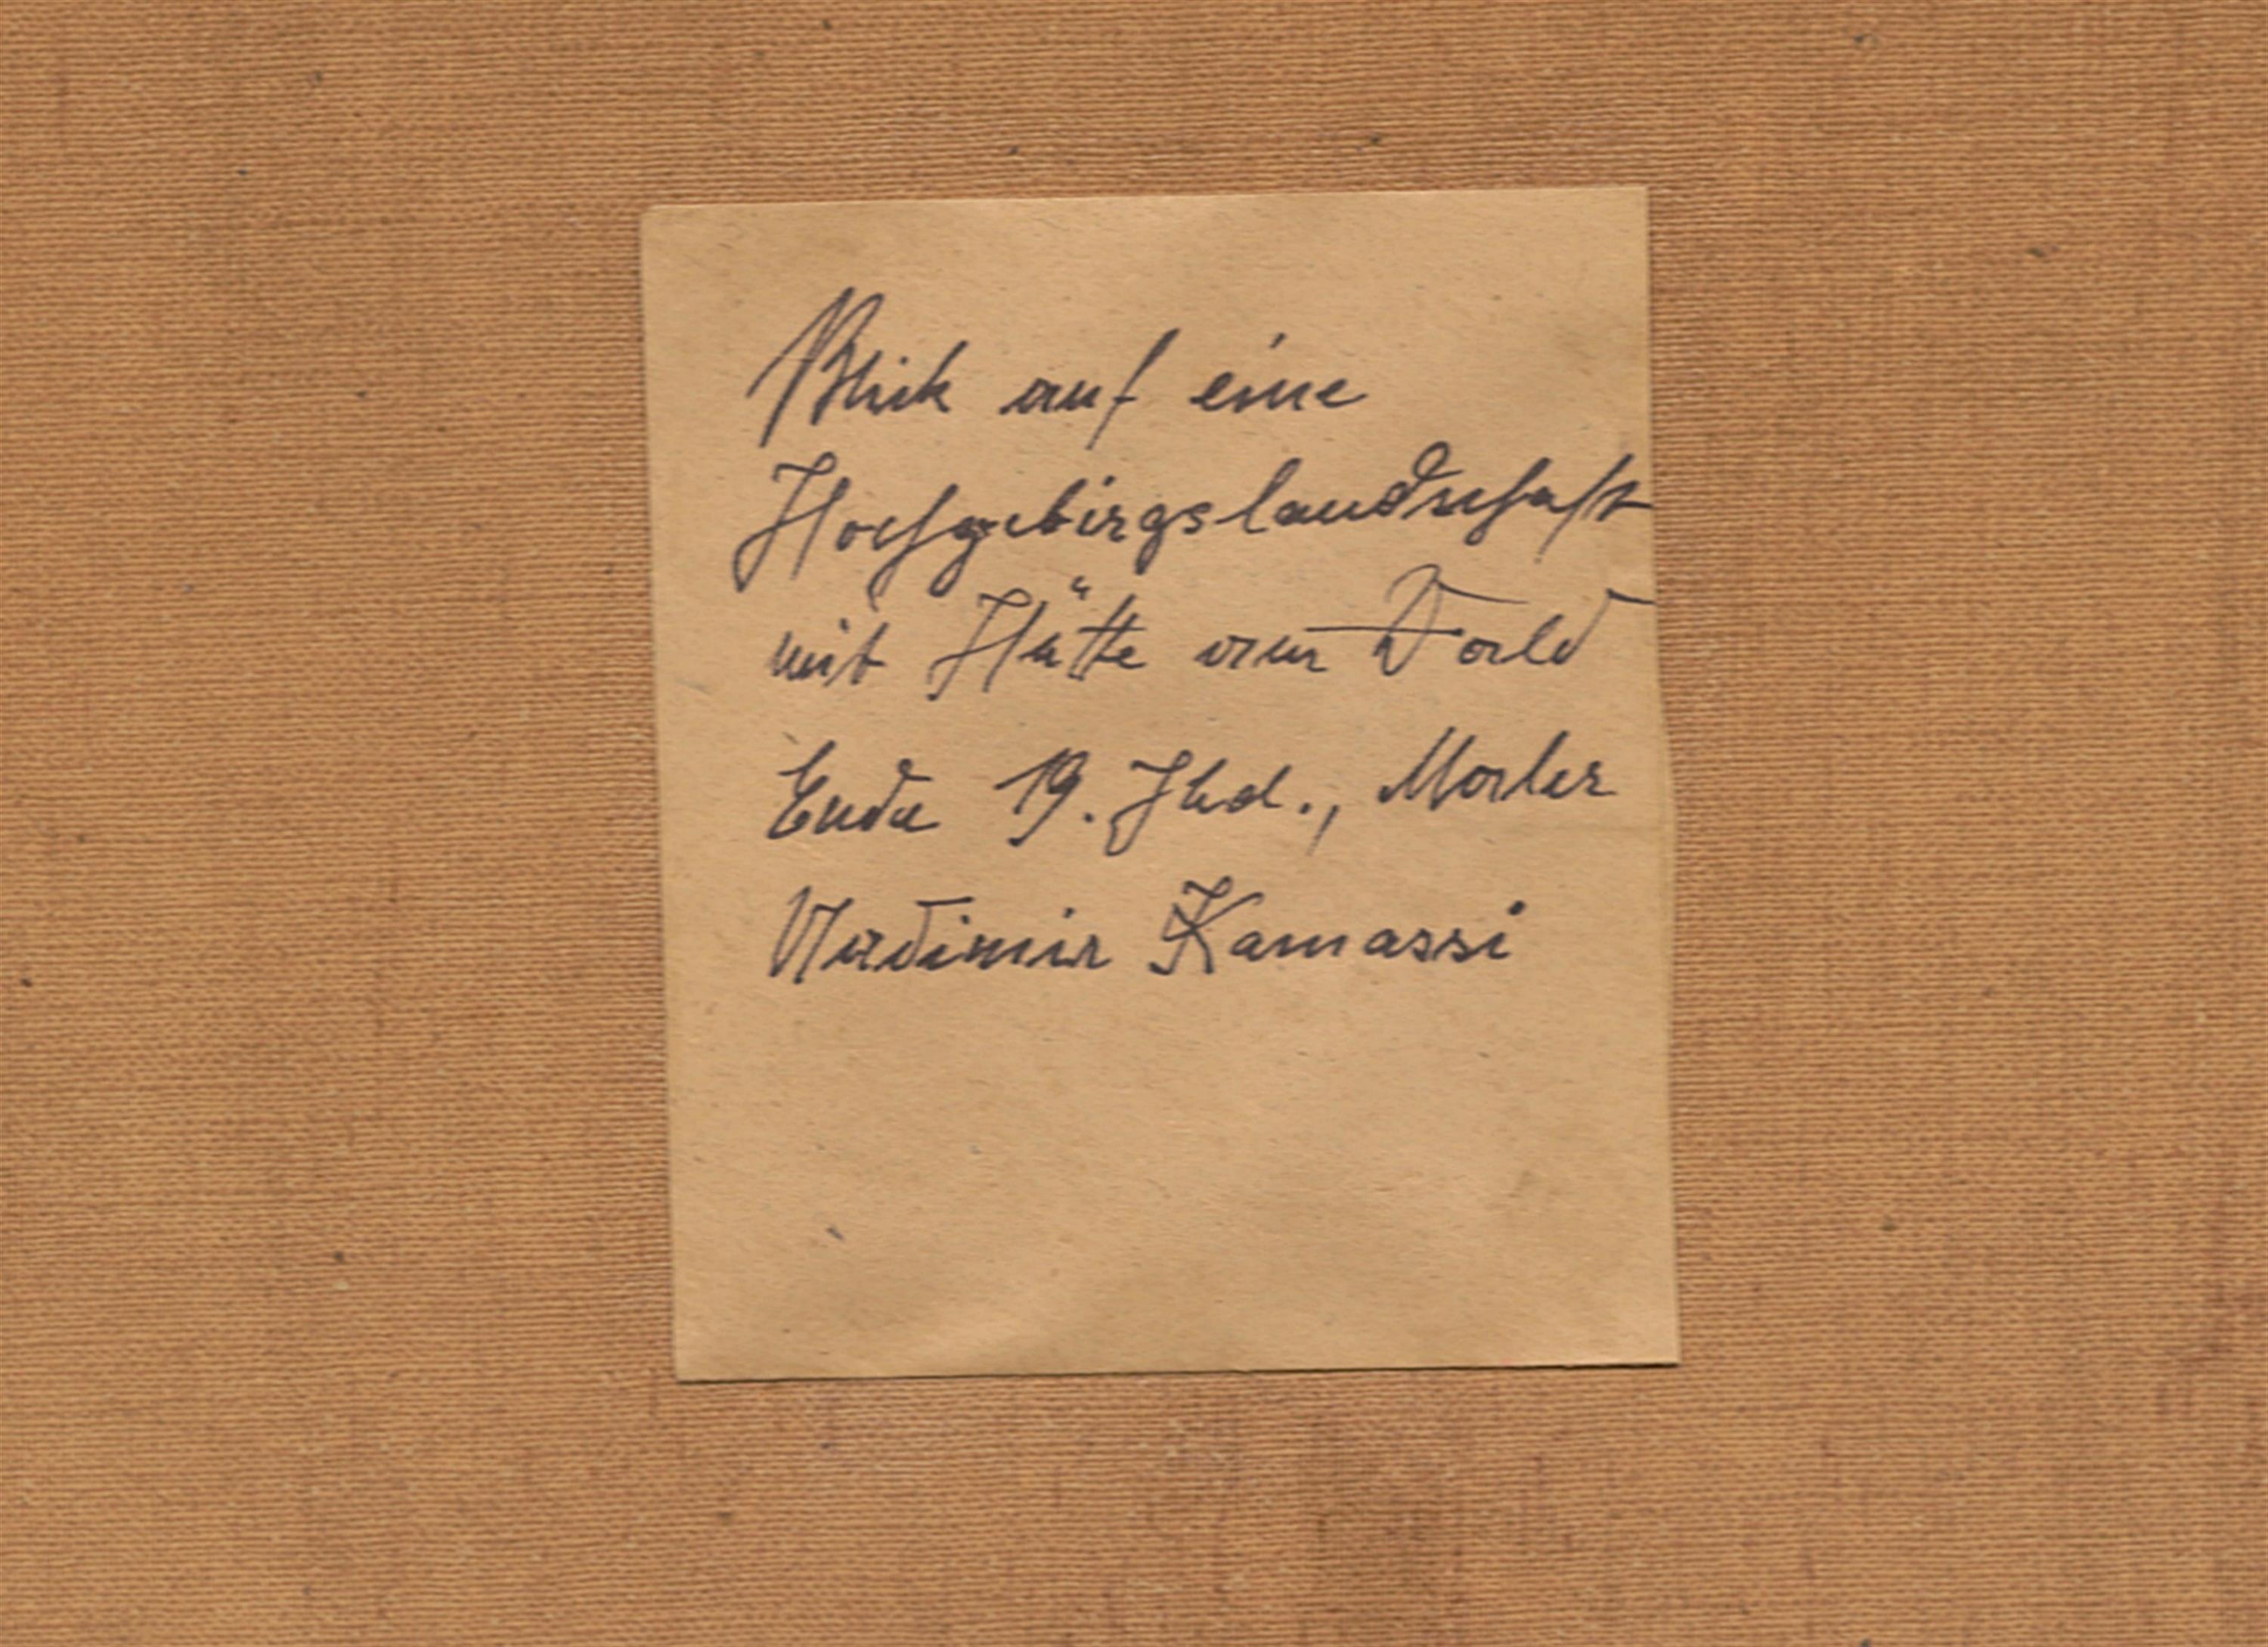 Blick auf eine
Hochgebirgslandschaft
mit Hütte am Wald
Ende 19. Jhd., Maler
Vladimir Kamassi